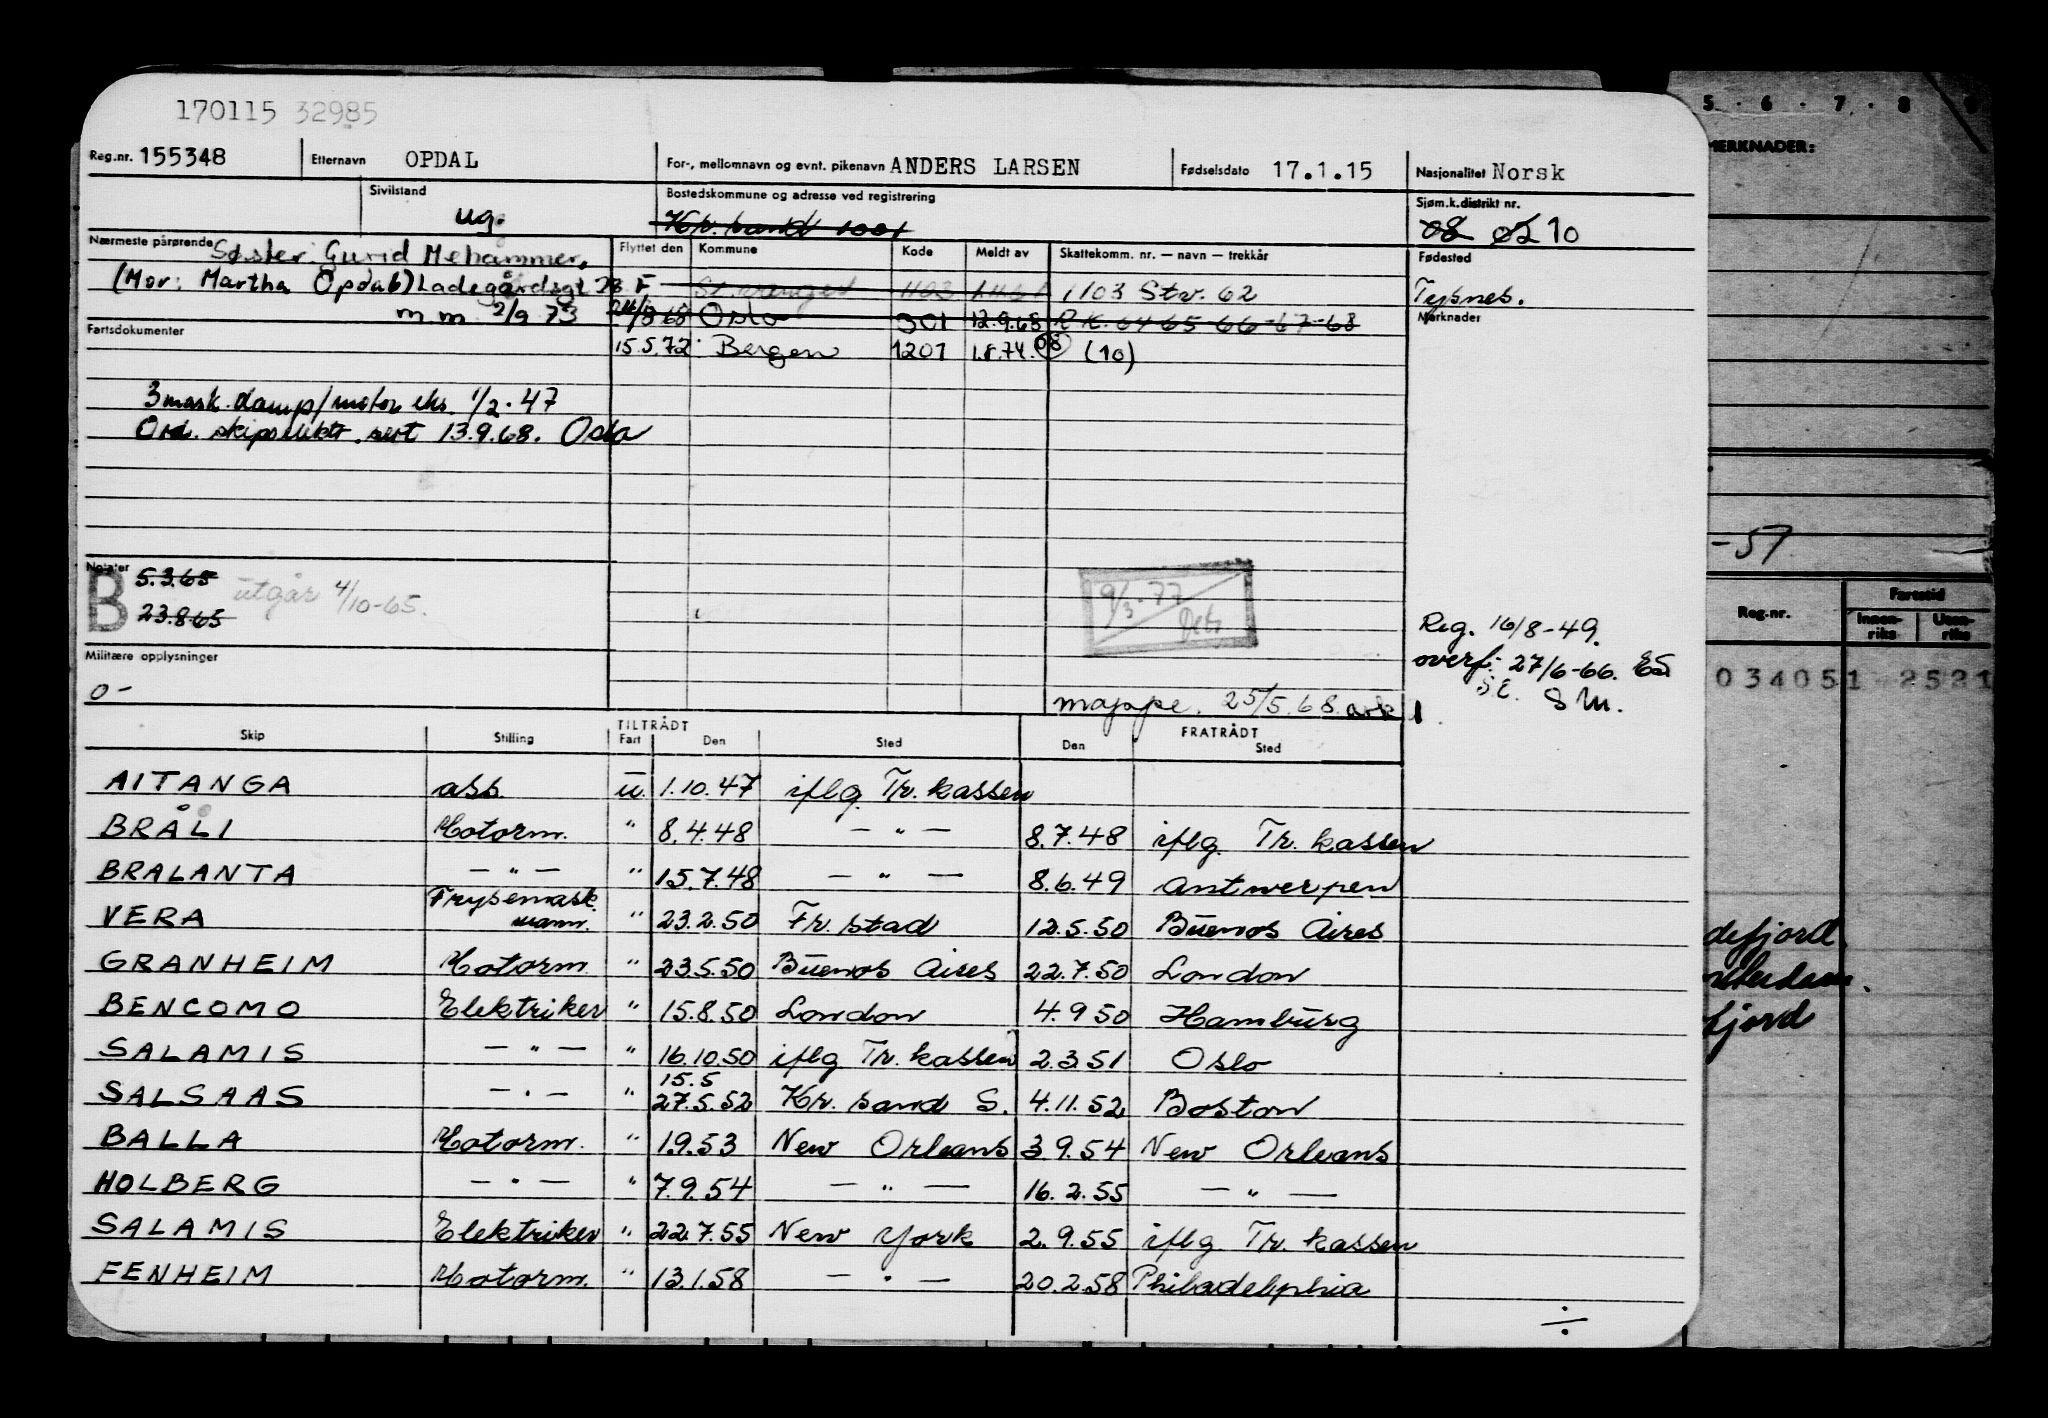 170115 32985
Reg.nr. 155348 Etternavn OPDAL For-, mellomnavn og evnt. pikenavn ANDERS LARSEN Fødselsdato 17.1.15 Nasjonalitet Norsk
Sivilstand ug. Bostedskommune og adresse ved registrering Kr. sand 1001 Sjøm.k.distrikt nr. 08 02 10
Nærmeste pårørende Søster: Gurid Mehammer,
(Mor: Martha Opdal) Ladegårdsgt 28. F
m m 2/9 73
Flyttet den Kommune Kode Meldt av Skattekomm. nr. — navn — trekkår
Stavanger 1103 1103 Stv. 62
24/8 68 Oslo 301 12.9.68 R K. 64-65-66-67-68
15.5.72 Bergen 1201 1.8.74. 08 (10)
Fødested
Tysnes.
Merknader
Fartsdokumenter
3 mask. damp/motor eks. 1/2-47
Ord. skipselektr. sert 13.9.68. Oslo
Notater
B 5.3.65 utgår 4/10-65.
23.8.65
9/3-77
Reg. 16/8-49.
overf: 27/6-66. ES
SE. SM.
Militære opplysninger
0-
mappe. 25/5.68. ark 1
Skip Stilling TILTRÅDT Fart Den Sted FRATRÅDT Den Sted
AITANGA ass. u. 1.10.47 iflg Tr. kassen
BRÅLI Motorm. " 8.4.48 — " — 8.7.48 iflg Tr. kassen
BRALANTA — " — " 15.7.48 — " — 8.6.49 Antwerpen
VERA Frysemask.mann. " 23.2.50 Fr. stad 12.5.50 Buenos Aires
GRANHEIM Motorm. " 23.5.50 Buenos Aires 22.7.50 London
BENCOMO Elektriker " 15.8.50 London 4.9 50 Hamburg
SALAMIS — " — " 16.10.50 iflg Tr. kassen 2.3.51 Oslo
15.5
SALSAAS — " — " 27.5.52 Kr. sand S. 4.11.52 Boston
BALLA Motorm. " 1.9.53 New Orleans 3.9.54 New Orleans
HOLBERG — " — " 7.9.54 — " — 16.2.55 — " —
SALAMIS Elektriker " 22.7.55 New York 2.9.55 iflg Tr. kassen
FENHEIM Motorm. " 13.1.58 — " — 20.2.58 Philadelphia
÷
5 . 6 . 7 . 8 9
MERKNADER:
-57
Reg.nr. Fartstid
Innenriks Utenriks
034051 2521
defjord
fjord